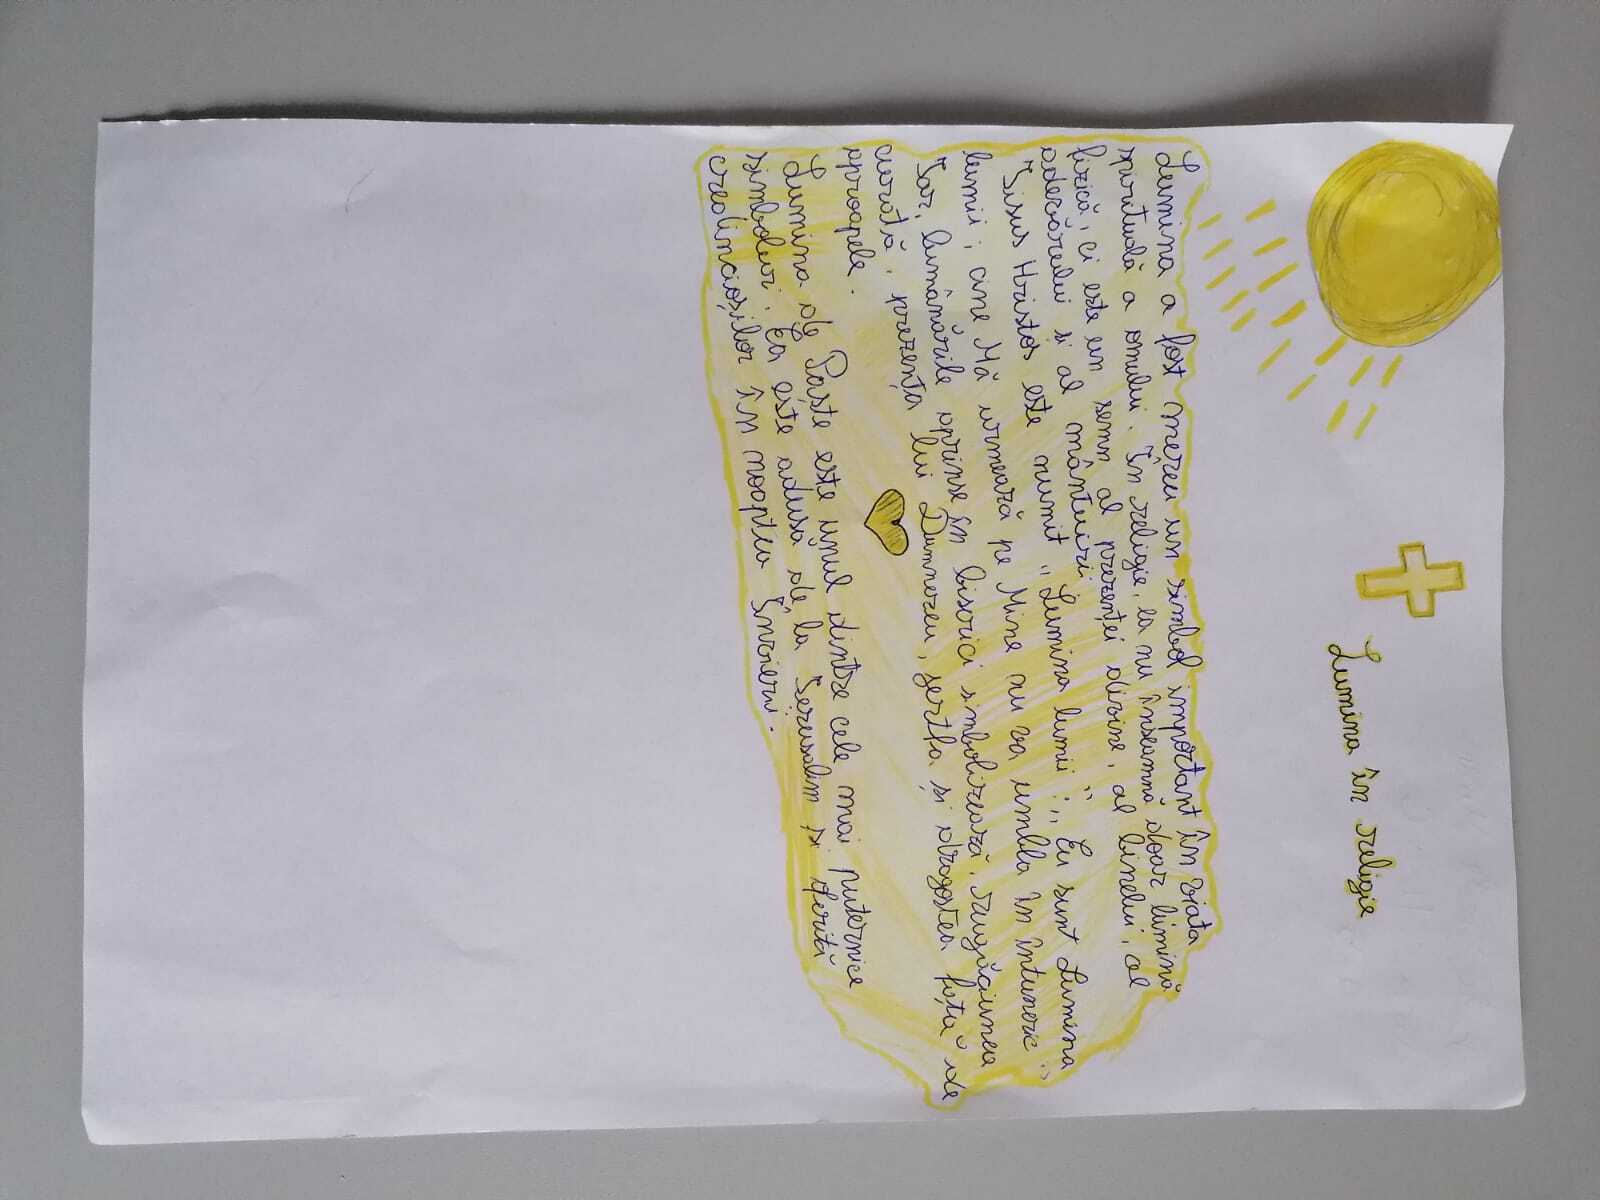 Lumina în religie
Lumina a fost mereu un simbol important în viata
spirituală a omului. În religie, ea nu înseamnă doar lumină
fizică, ci este un semn al prezenței divine, al binelui, al
adevărului și al mântuirii.
Iisus Hristos este numit "Lumina lumii": "Eu sunt Lumina
lumii; cine Mă urmează pe Mine nu va umbla în întuneric"
Iar, lumânările aprinse în biserici simbolizează, rugăciunea
curată, prezența lui Dumnezeu, jertfa și dragostea față de
aproapele.
Lumina de Paște este unul dintre cele mai puternice
simboluri: Ea este adusă de la Ierusalim și oferită
credincioșilor în noaptea Învierii.